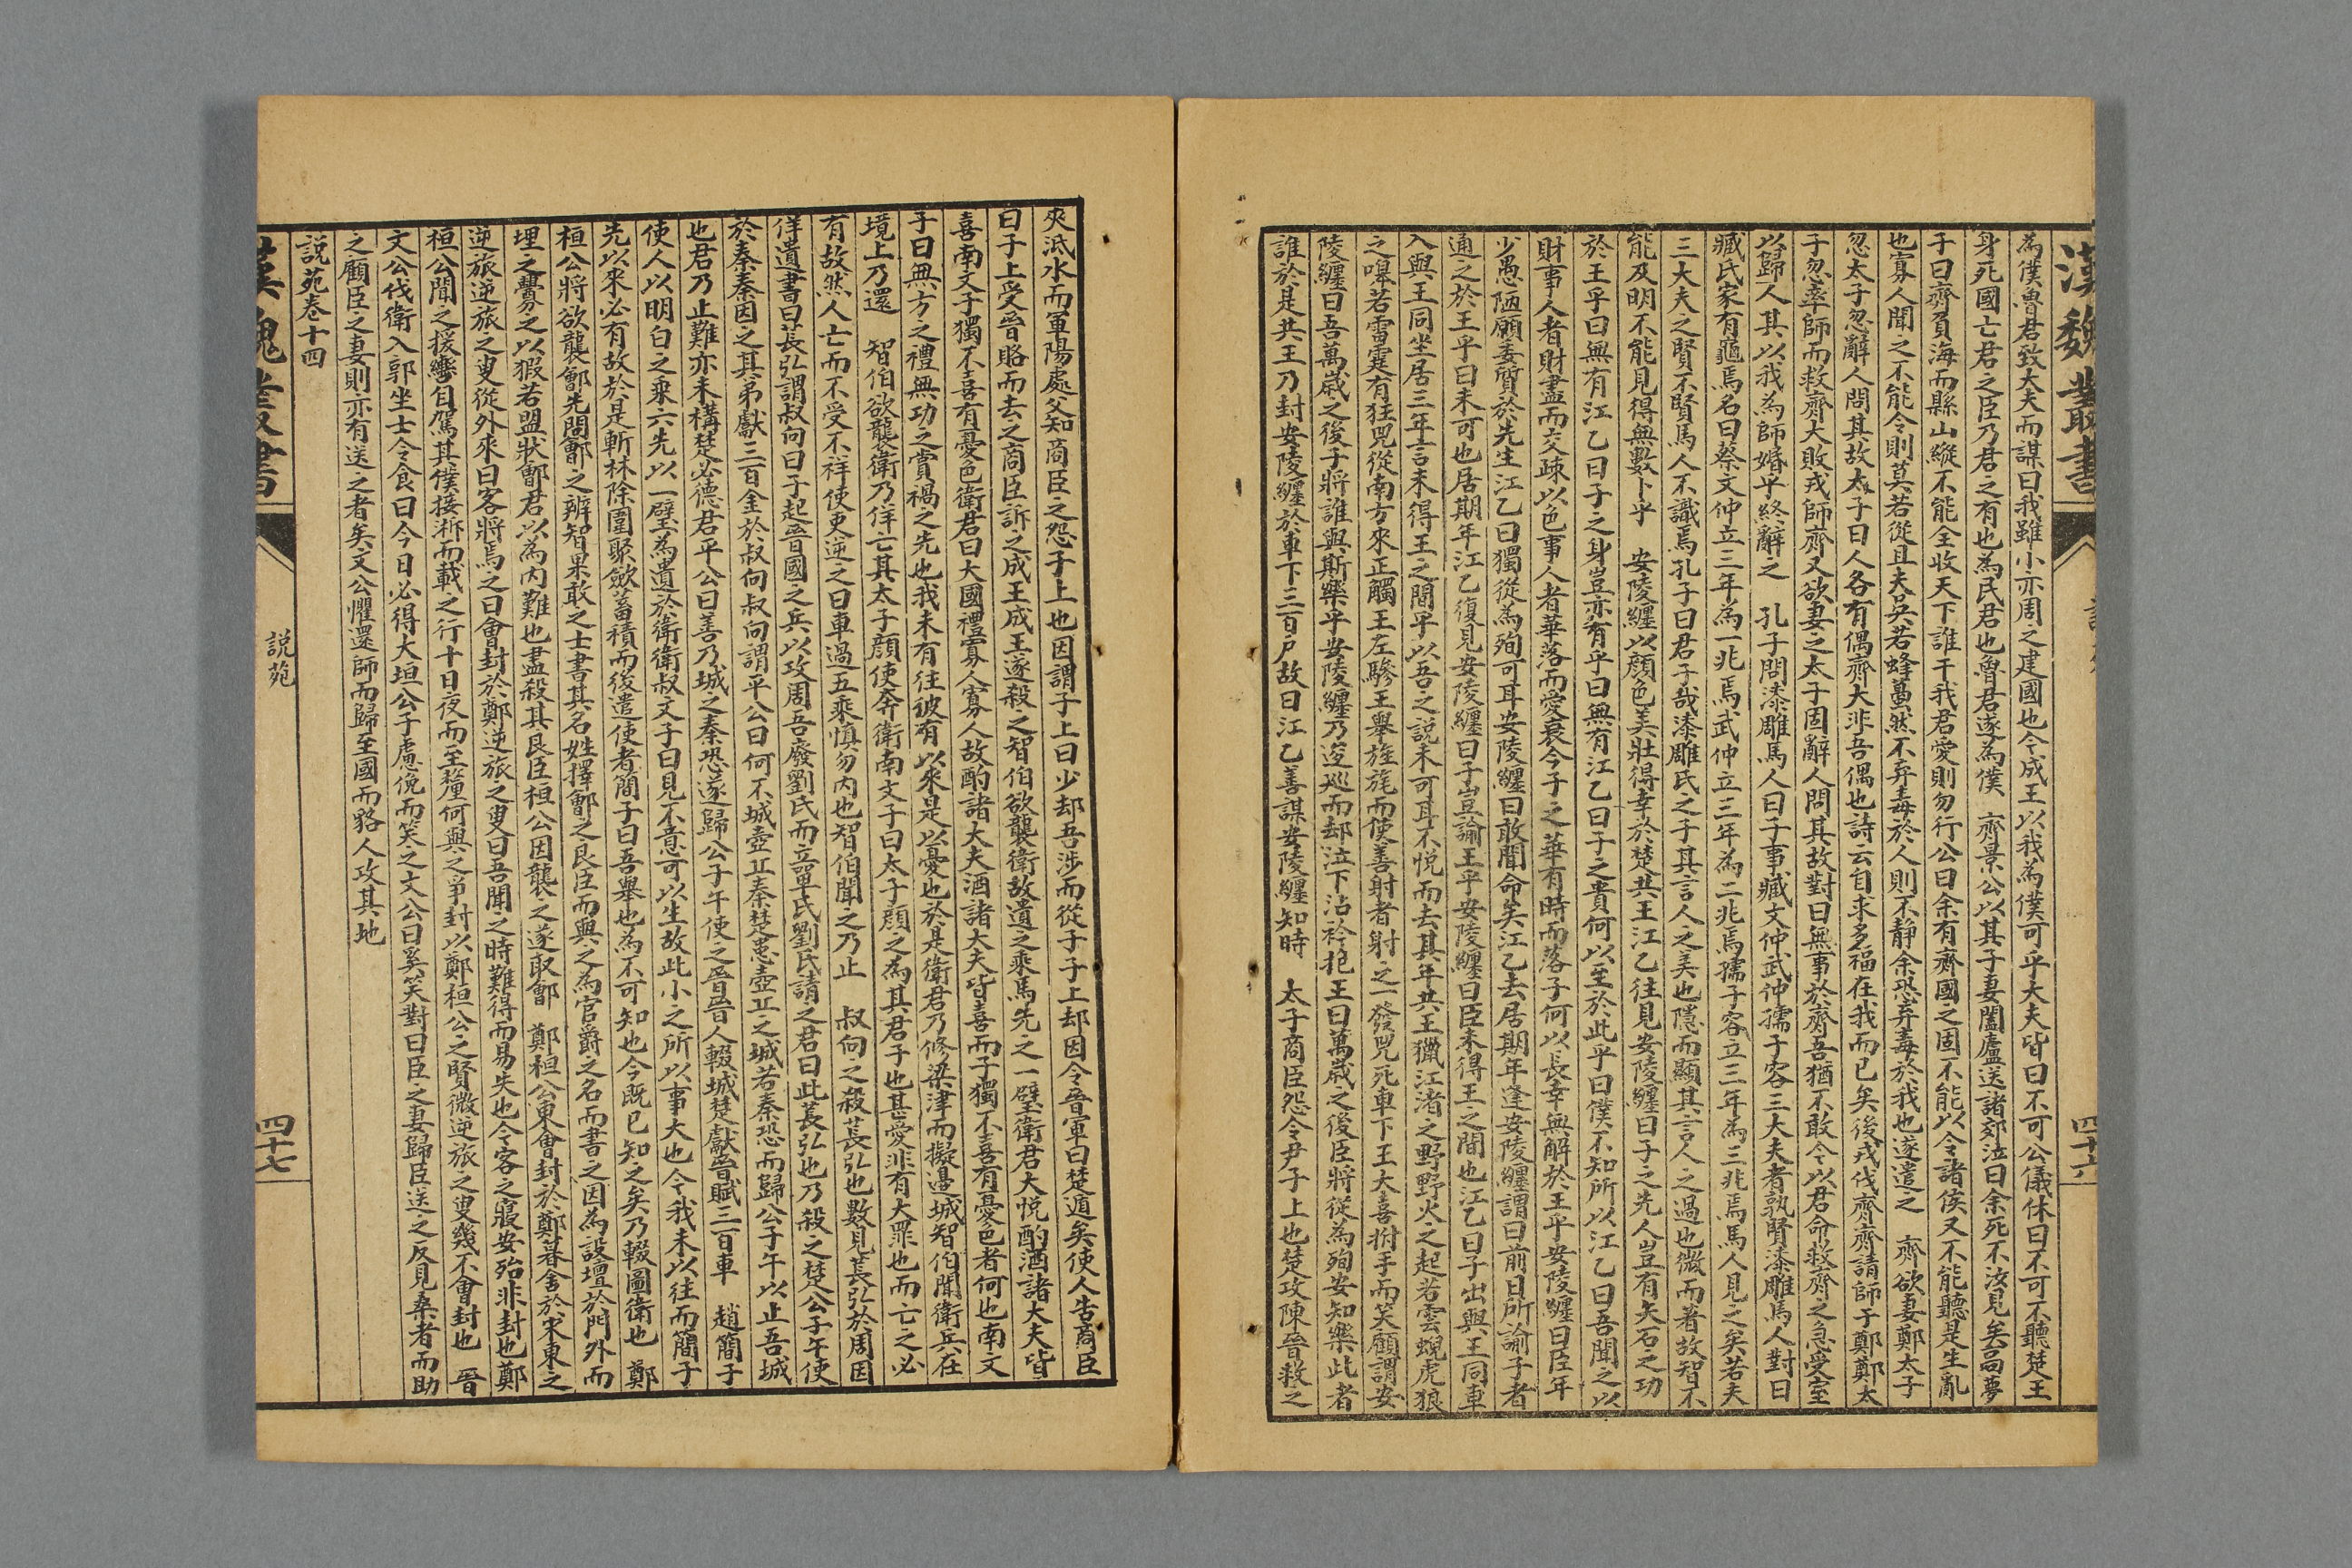 漢魏叢書
四十六
為僕魯君致大夫而謀曰我雖小亦周之建國也今成王以我為僕可乎大夫皆曰不可公儀休曰不可不聽楚王
身死國亡君之臣乃君之有也為民君也魯君遂為僕　齊景公以其子妻闔廬送諸郊泣曰余死不汝見矣高夢
子曰齊負海而縣山縱不能全收天下誰干我君愛則勿行公曰余有齊國之固不能以令諸侯又不能聽是生亂
也寡人聞之不能令則莫若從且夫吳若蜂蠆然不弃毒於人則不靜余恐弃毒於我也遂遣之　齊欲妻鄭太子
忽太子忽辭人問其故太子曰人各有偶齊大非吾偶也詩云自求多福在我而已矣後戎伐齊齊請師于鄭鄭太
子忽率師而救齊大敗戎師齊又欲妻之太子固辭人問其故對曰無事於齊吾猶不敢今以君命救齊之急受室
以歸人其以我為師婚乎終辭之　孔子問漆雕馬人曰子事臧文仲武仲孺子容三大夫者孰賢漆雕馬人對曰
臧氏家有龜焉名曰蔡文仲立三年為一兆焉武仲立三年為二兆焉孺子容立三年為三兆焉馬人見之矣若夫
三大夫之賢不賢馬人不識焉孔子曰君子哉漆雕氏之子其言人之美也隱而顯其言人之過也微而著故智不
能及明不能見得無數卜乎　安陵纏以顏色美壯得幸於楚共王江乙往見安陵纏曰子之先人豈有矢石之功
於王乎曰無有江乙曰子之身豈亦有乎曰無有江乙曰子之貴何以至於此乎曰僕不知所以江乙曰吾聞之以
財事人者財盡而交疎以色事人者華落而愛衰今子之華有時而落子何以長幸無解於王乎安陵纏曰臣年
少愚陋願委質於先生江乙曰獨從為殉可耳安陵纏曰敢聞命矣江乙去居期年逢安陵纏謂曰前日所諭子者
通之於王乎曰未可也居期年江乙復見安陵纏曰子豈諭王乎安陵纏曰臣未得王之間也江乙曰子出與王同車
入與王同坐居三年言未得王之間乎以吾之說未可耳不悅而去其年共王獵江渚之野野火之起若雲蜺虎狼
之嘷若雷霆有狂兕從南方來正觸王左驂王舉旌旄而使善射者射之一發兕死車下王大喜拊手而笑顧謂安
陵纏曰吾萬歲之後子將誰與斯樂乎安陵纏乃逡巡而却泣下沾衿抱王曰萬歲之後臣將從為殉安知樂此者
誰於是共王乃封安陵纏於車下三百戶故曰江乙善謀安陵纏知時　太子商臣怨令尹子上也楚攻陳晉救之
夾泜水而軍陽處父知商臣之怨子上也因謂子上曰少却吾涉而從子子上却因令晉軍曰楚遁矣使人告商臣
曰子上受晉賂而去之商臣訴之成王成王遂殺之智伯欲襲衛故遺之乘馬先之一璧衛君大悅酌酒諸大夫皆
喜南文子獨不喜有憂色衛君曰大國禮寡人寡人故酌諸大夫酒諸大夫皆喜而子獨不喜有憂色者何也南文
子曰無方之禮無功之賞禍之先也我未有往彼有以來是以憂也於是衛君乃修梁津而擬邊城智伯聞衛兵在
境上乃還　智伯欲襲衛乃佯亡其太子顏使奔衛南文子曰太子顏之為其君子也甚愛非有大罪也而亡之必
有故然人亡而不受不祥使吏逆之曰車過五乘慎勿內也智伯聞之乃止　叔向之殺萇弘也數見萇弘於周因
佯遺書曰萇弘謂叔向曰子起晉國之兵以攻周吾廢劉氏而立單氏劉氏請之君曰此萇弘也乃殺之楚公子午使
於秦秦因之其弟獻三百金於叔向叔向謂平公曰何不城壺丘秦楚患壺丘之城若秦恐而歸公子午以止吾城
也君乃止難亦未構楚必德君平公曰善乃城之秦恐遂歸公子午使之晉晉人輟城楚獻晉賦三百車　趙簡子
使人以明白之乘六先以一璧為遺於衛衛叔文子曰見不意可以生故此小之所以事大也今我未以往而簡子
先以來必有故於是斬林除圍聚斂蓄積而後遣使者簡子曰吾舉也為不可知也今既已知之矣乃輟圖衛也　鄭
桓公將欲襲鄶先問鄶之辨智果敢之士書其名姓擇鄶之良臣而與之為官爵之名而書之因為設壇於門外而
埋之釁之以猳若盟狀鄶君以為內難也盡殺其良臣桓公因襲之遂取鄶　鄭桓公東會封於鄭暮舍於宋東之
逆旅逆旅之叟從外來曰客將焉之曰會封於鄭逆旅之叟曰吾聞之時難得而易失也今客之寢安殆非封也鄭
桓公聞之援轡自駕其僕接淅而載之行十日夜而至釐何與之爭封以鄭桓公之賢微逆旅之叟幾不會封也　晉
文公伐衛入郭坐士令食曰今日必得大垣公子慮俛而笑之文公曰奚笑對曰臣之妻歸臣送之反見桑者而助
之顧臣之妻則亦有送之者矣文公懼還師而歸至國而貉人攻其地
說苑卷十四
說苑
四十七